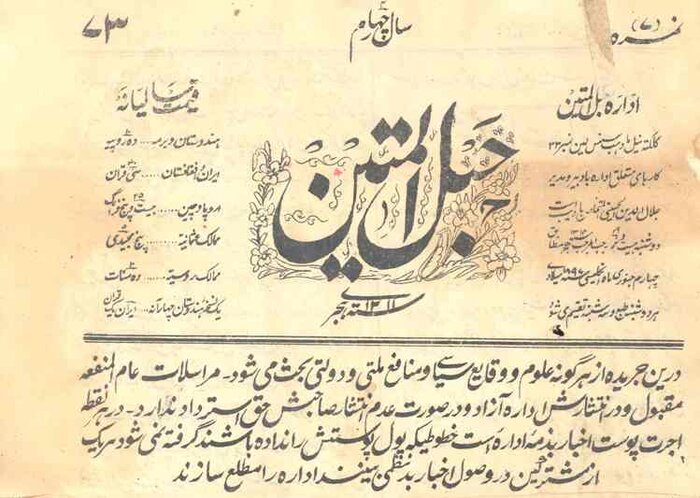 نمره (۷)
سال چهارم
۷۳
اداره حبل المتین
کلکته
کارهای متعلق اداره با دبیر و مدیر
جلال الدین الحسینی
چهارم جنوری ماه انگلیسی
هر دوشنبه طبع و سه شنبه تقسیم می شود
حبل المتین
سنه ۱۳۱۱ هجری
قیمت سالیانه
هندوستان و برمه ... ده روپیه
ایران و افغانستان ... سی قران
اروپا و چین ... بیست و پنج فرانک
ممالک عثمانیه ... پنج مجیدی
ممالک روسیه ... ده منات
یک نسخه هندوستان چهار آنه ... ایران یک قران
درین جریده از هر گونه علوم و وقایع سیاسی و منافع ملتی و دولتی بحث می شود - مراسلات عام المنفعه
مقبول و در انتشارش اداره آزاد و در صورت عدم انتشار صاحبش حق استرداد ندارد - در هر نقطه
اجرت پوست اخبار بذمه اداره است خطوطیکه پول پوستش را نداده باشند گرفته نمی شود هر یک
از مشترکین در وصول اخبار بدنظمی بینند اداره را مطلع سازند